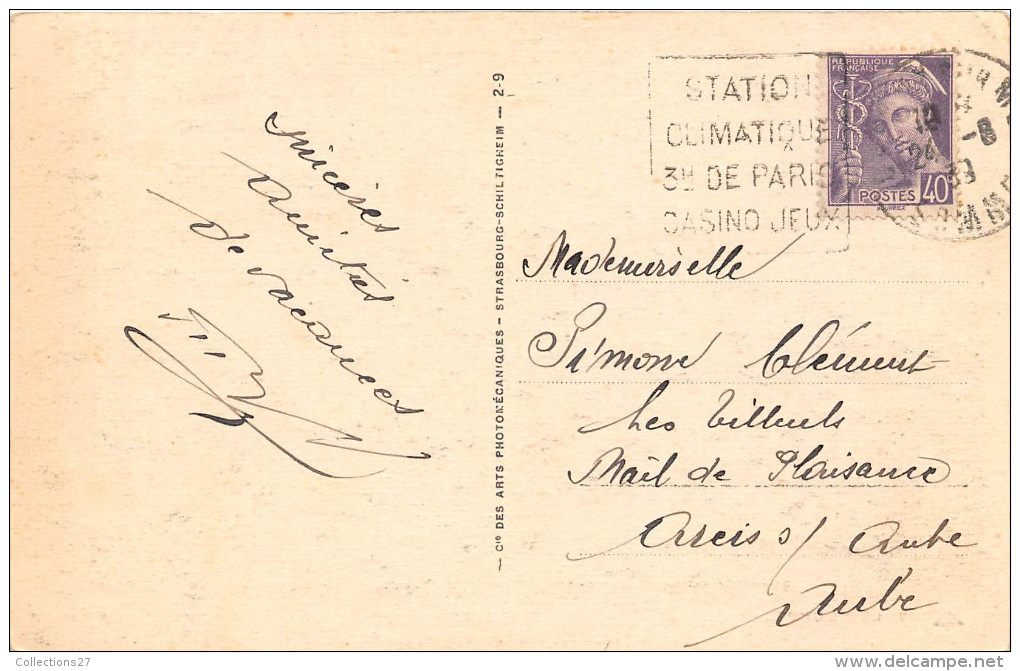 sincères
Amitiés
de vacances
— Cie DES ARTS PHOTOMÉCANIQUES - STRASBOURG-SCHILTIGHEIM — 2-9
STATION
CLIMATIQUE
3H DE PARIS
CASINO JEUX
RÉPUBLIQUE
FRANÇAISE
POSTES 40c
24 -8
39
Mademoiselle
Simone Clément
Les Tilleuls
Mail de Plaisance
Arcis s/ Aube
Aube
Collections27
delcampe.net